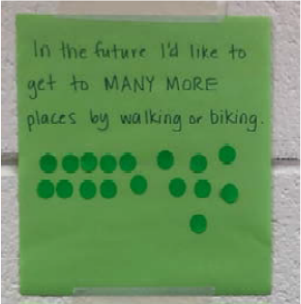 In the future I'd like to
get to MANY MORE
places by walking or biking.